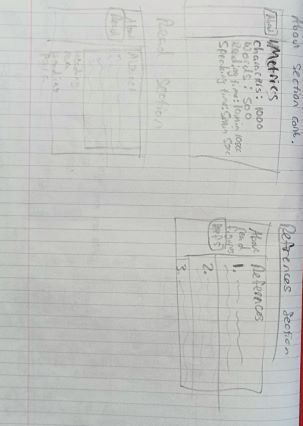 About Section cont.
About
Metrics
Characters: 1000
Words: 500
Reading time: 10min 10sec
Speaking time: 5min 50sec
Refrences Section
About
Read
Figures
Refs
References
1.
2.
3.
Read Section
About
Read
Abstract